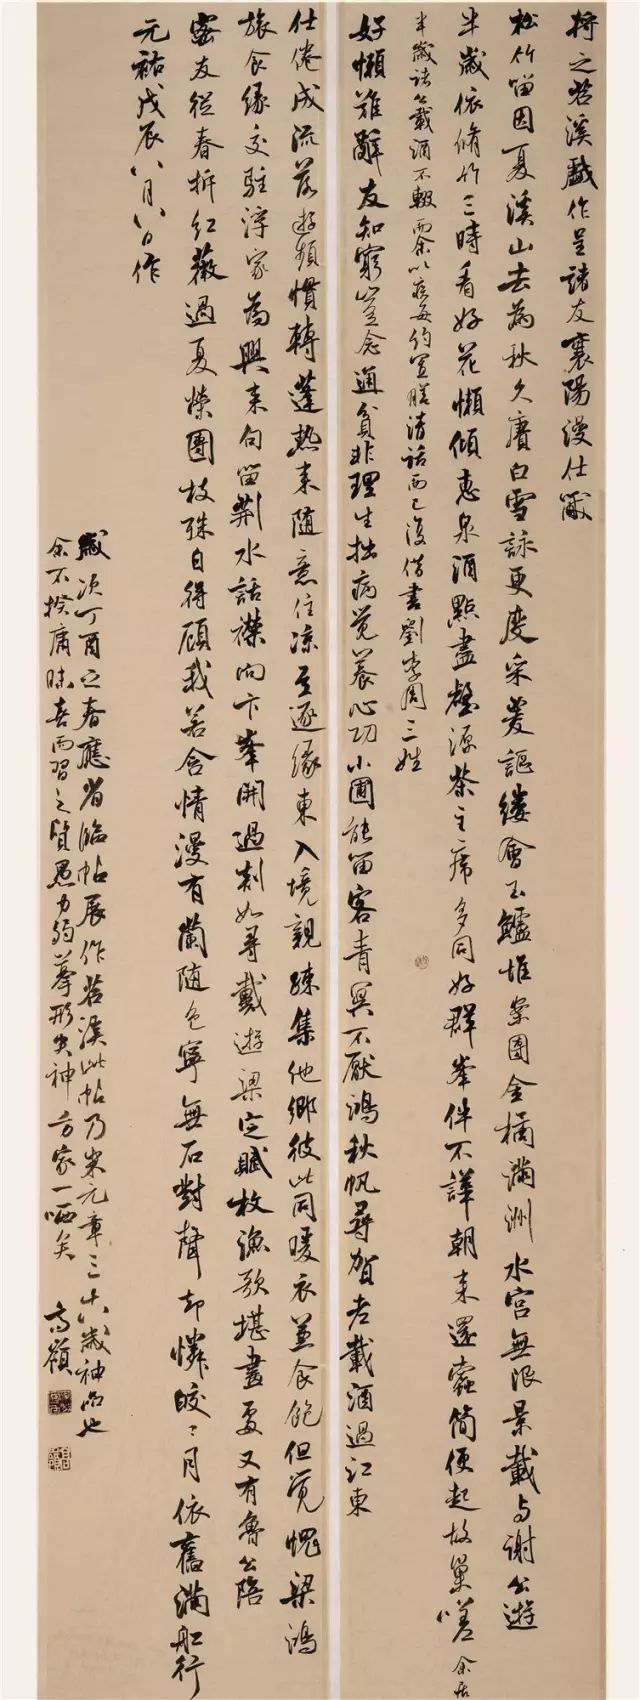 将之苕溪戏作呈諸友襄陽漫仕黻
松竹留因夏溪山去為秋久賡白雪詠更度采菱謳縷會玉鱸堆案團金橘滿洲水宮無限景載与謝公遊
半歲依脩竹三時看好花懶傾惠泉酒點盡壑源茶主席多同好群峯伴不譁朝来還蠹簡便起故巢嗟余居
半歲諸公載酒不輟而余以疾每約置膳清話而已復借書劉李周三姓
好懶難辭友知窮豈念通貧非理生拙病觉養心功小圃能留客青冥不厭鴻秋帆尋賀老載酒過江東
仕倦成流落遊頻慣轉蓬热来隨意住凉至逐緣東入境親疎集他鄉彼此同暖衣兼食飽但觉愧梁鴻
旅食緣交駐浮家為興来句留荆水話襟向卞峯開過剡如尋戴遊梁定賦枚漁歌堪畫處又有魯公陪
密友從春拆紅薇過夏榮團枝殊自得顧我若含情漫有蘭随色寧無石對聲却憐皎〻月依舊滿舡行
元祐戊辰八月八日作
歲次丁酉之春應省臨帖展作苕溪此帖乃米元章三十八歲神品也
余不揆庸昧喜而習之質愚力弱摹形失神方家一哂矣 高嶺